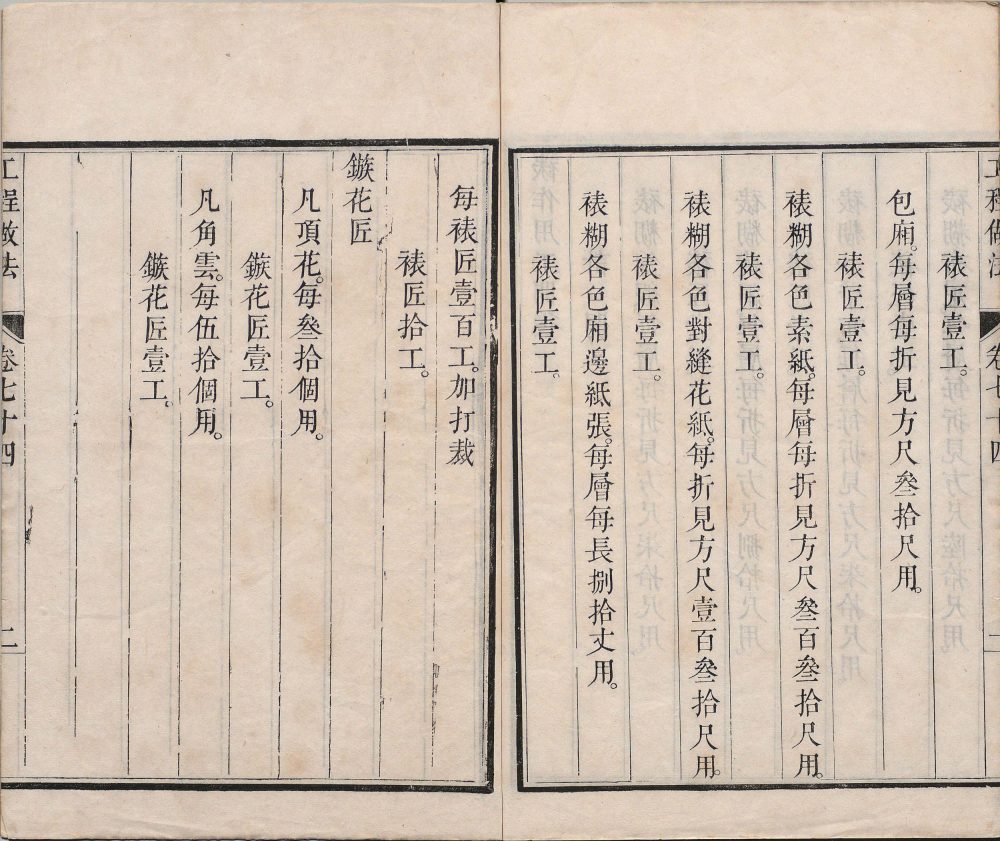 工程做法 卷七十四
裱匠壹工。
包廂。每層每折見方尺叄拾尺用。
裱匠壹工。
裱糊各色素紙。每層每折見方尺叄百叄拾尺用。
裱匠壹工。
裱糊各色對縫花紙。每折見方尺壹百叄拾尺用。
裱匠壹工。
裱糊各色廂邊紙張。每層每長捌拾丈用。
裱匠壹工。
每裱匠壹百工。加打裁
裱匠拾工。
鏃花匠
凡頂花。每叄拾個用。
鏃花匠壹工。
凡角雲。每伍拾個用。
鏃花匠壹工。
工程做法 卷七十四 二